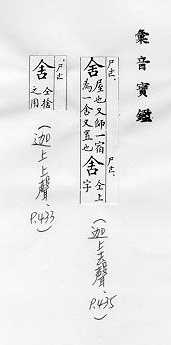 彙音寶鑑
ㄕㄜˋ
舍 屋也又師一宿
為一舍又置也
ㄕㄜˋ
舍 仝上
字
(迦上去聲、P.435)
ㄕㄜˇ
舍 仝捨
之用
(迦上上聲、P.433)